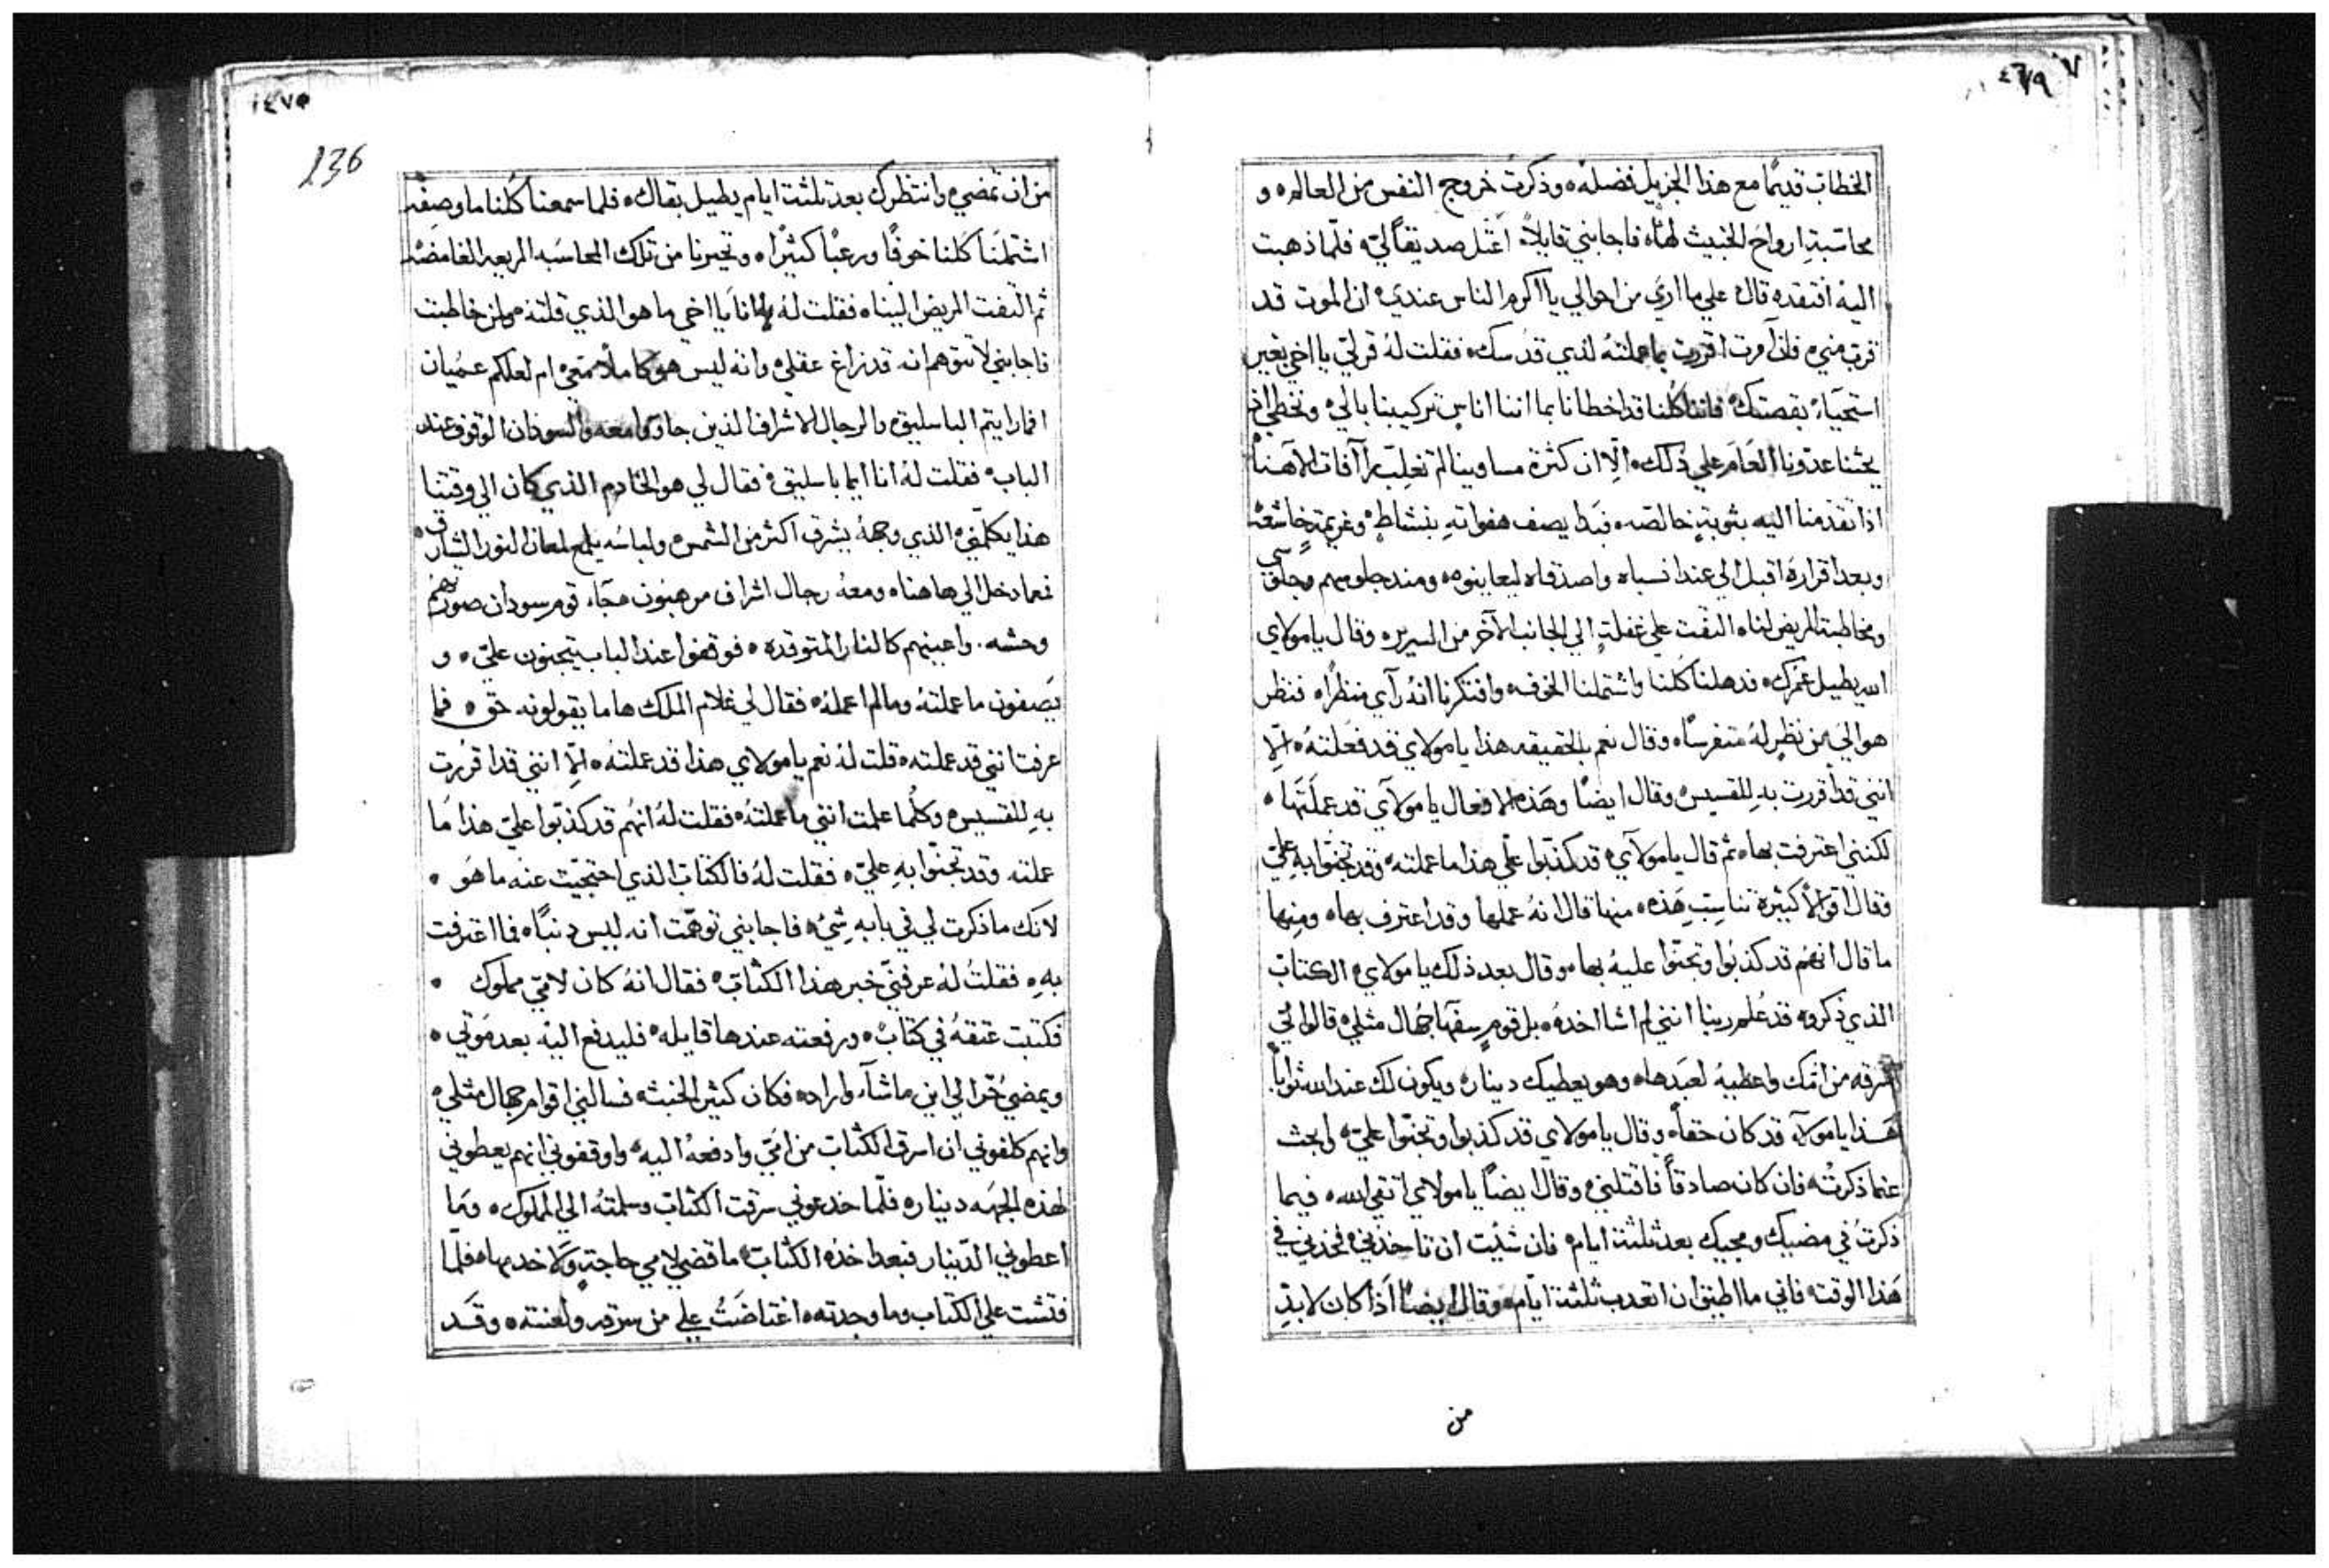 الخطاب قديمًا مع هذا الجزيل فضله وذكرت خروج النفس من العالم و
محاسبة ارواح الخبيث لها فاجابني قايلاً اعتل صديقاً لي فلما ذهبت
اليه افتقده قال علي ما اري من احوالي يا اكرم الناس عندي ان الموت قد
قرب مني فان امرت اقررت بما عملته لذي قدسك فقلت له قر لي يا اخي بغير
استحياء بقصتك فاننا كلنا قد اخطانا بما اننا اناس تركيبنا بالي ونخطي اذ
يحثنا عدونا العام علي ذلك الا ان كثرة مساوينا لم تغلب رافات الاهنا
اذا تقدمنا اليه بتوبة خالصه فبدا يصف هفواته بنشاط وعزيمة خاشعه
وبعد اقراره اقبل الي عند انسباه واصدقاه ليعاينوه ومند جلوسهم وجلوسي
ومخاطبة المريض لناه التفت علي غفلة الي الجانب الاخر من السرير وقال يا مولاي
الله يطيل عمرك فدهلنا كلنا واشتملنا الخوف وافتكرنا انه راي منظراه فنظر
هو الي من نظر له متفرساه وقال نعم بالحقيقه هذا يا مولاي قد فعلته الا
انني قد اقررت به للقسيس وقال ايضًا وهذه الافعال يا مولاي قد عملتها
لكنني اعترفت بهاه ثم قال يا مولاي قد كذبوا علي هذا ما عملته وقد تجنوا به علي
فقال اقوالاً كثيرة تناسب هذه منها قال انه عملها وقد اعترف بهاه ومنها
ما قال انهم قد كذبوا وتجنوا عليه بها وقال بعد ذلك يا مولاي الكتاب
الذي ذكروه قد علم ربنا انني لم اشا اخده بل قوم سفها جهال مثلي قالوا لي
اسرقه من امك واعطيه لعبدهاه وهو يعطيك ديناره ويكون لك عند الله ثواباً
هذا يا مولاه قد كان حقاً وقال يا مولاي قد كذبوا وتجنوا علي ابحث
عما ذكرته فان كان صادقاً فاقتلني وقال ايضاً يا مولاي اتقي الله فيما
ذكرت في مضيك ومجيك بعد ثلثة ايام فان شيت ان تاخذني فخذني في
هذا الوقت فاني ما اطيق ان اتعدب ثلثة ايام وقال ايضاً اذا كان لا بد
من
١٤٧٥
136
من ان تمضي وانتظرك بعد ثلثة ايام يطيل بقاك فلما سمعنا كلنا ما وصفه
اشتملنا كلنا خوفًا ورعبًا كثيراه وتحيرنا من تلك المحاسبه المريعه الغامضه
ثم التفت المريض اليناه فقلت له انا يا اخي ما هو الذي قلته ولمن خاطبت
فاجابني لا تتوهم انه قد زاغ عقلي وانه ليس هو كاملاً معي ام لعلكم عميان
افما رايتم الباسليق والرجال الاشراف الذين جاوا معه والسودان الوقوف عند
الباب فقلت له انا ايما باسليق فقال لي هو الخادم الذي كان الي وقتنا
هذا يكلمني الذي وجهه يشرق اكثر من الشمس ولباسه يلمع لمعان النور الشارق
فعما دخل الي هاهناه ومعه رجال اشراف مرهبون فجاء قوم سودان صورهم
وحشه واعينهم كالنار المتوقده فوقفوا عند الباب يتجنون علي و
يصفون ما عملته وما لم اعمله فقال لي غلام الملك هاما يقولونه حق فما
عرفت انني قد عملته قلت له نعم يا مولاي هذا قد عملته الا انني قد اقررت
به للقسيس وكلما علمت انني ما عملته فقلت له انهم قد كذبوا علي هذا ما
عملته وقد تجنوا به علي فقلت له فالكتاب الذي احتججت عنه ما هو
لانك ما ذكرت لي في بابه شي فاجابني توهمت انه ليس دنباه فما اعترفت
به فقلت له عرفني خبر هذا الكتاب فقال انه كان لامي مملوك
فكتبت عتقه في كتاب ورفعته عندها قايله فليدفع اليه بعد موتي
ويمضي حرا الي اين ما شاء واراده فكان كثير الخبث فسالني اقوام جهال مثلي
وانهم كلفوني ان اسرق الكتاب من امي وادفعه اليه واوقفوني انهم يعطوني
لهذه الجهه ديناره فلما خدعوني سرقت الكتاب وسلمته الي المملوك وما
اعطوني الدينار فبعد اخذه الكتاب ما قضي لامي حاجة ولا خدمهاه فلما
فتشت علي الكتاب وما وجدته اغتاضت علي من سرقه ولعنته وقد